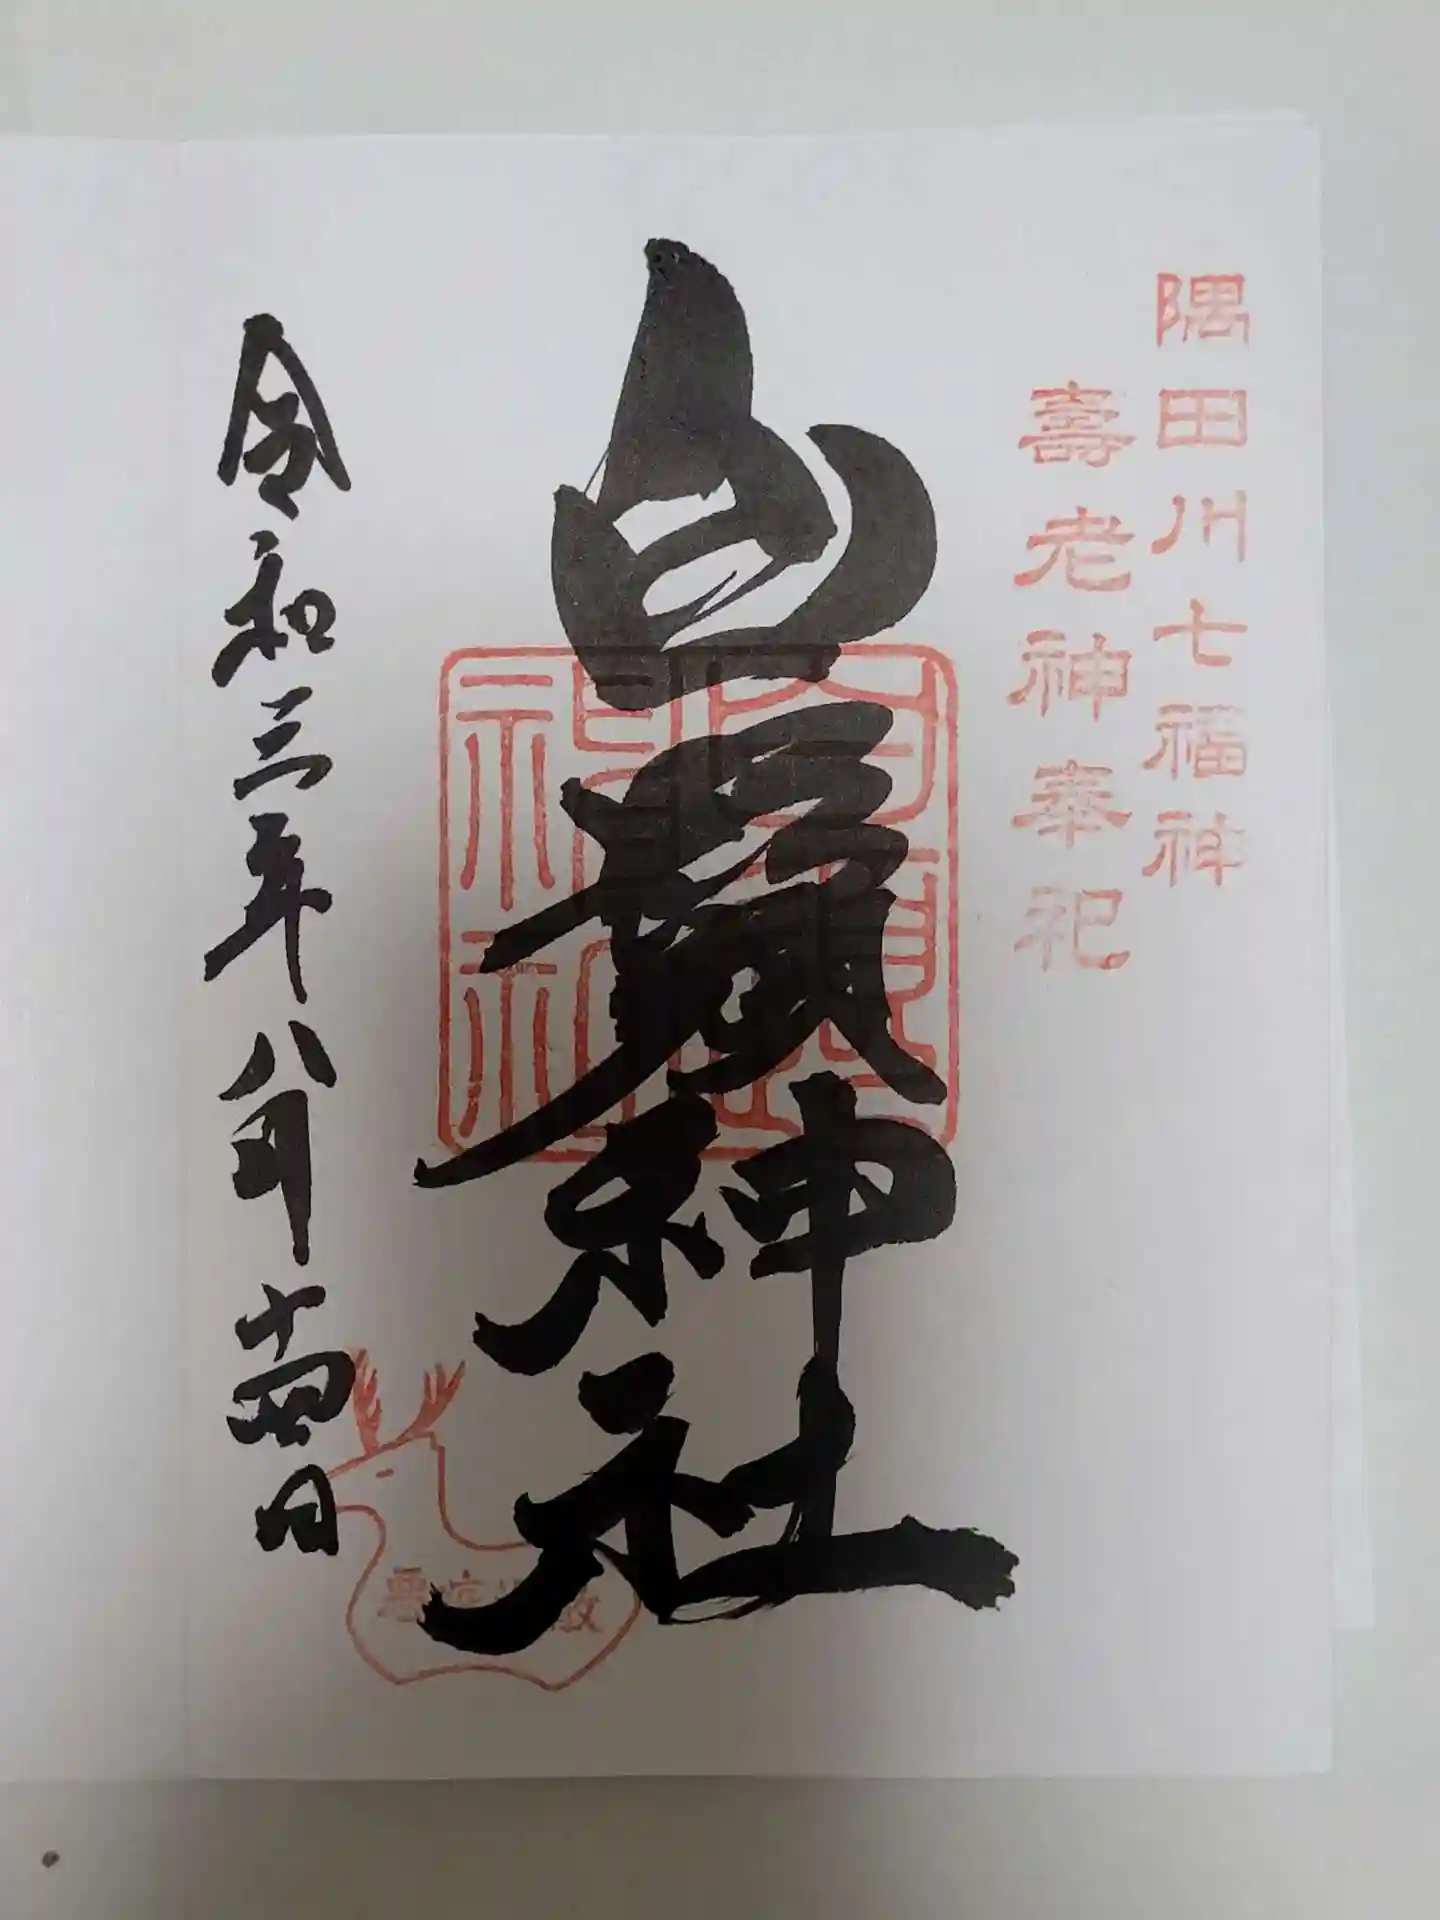 隅田川七福神
壽老神奉祀
白鬚神社
令和三年八月十四日